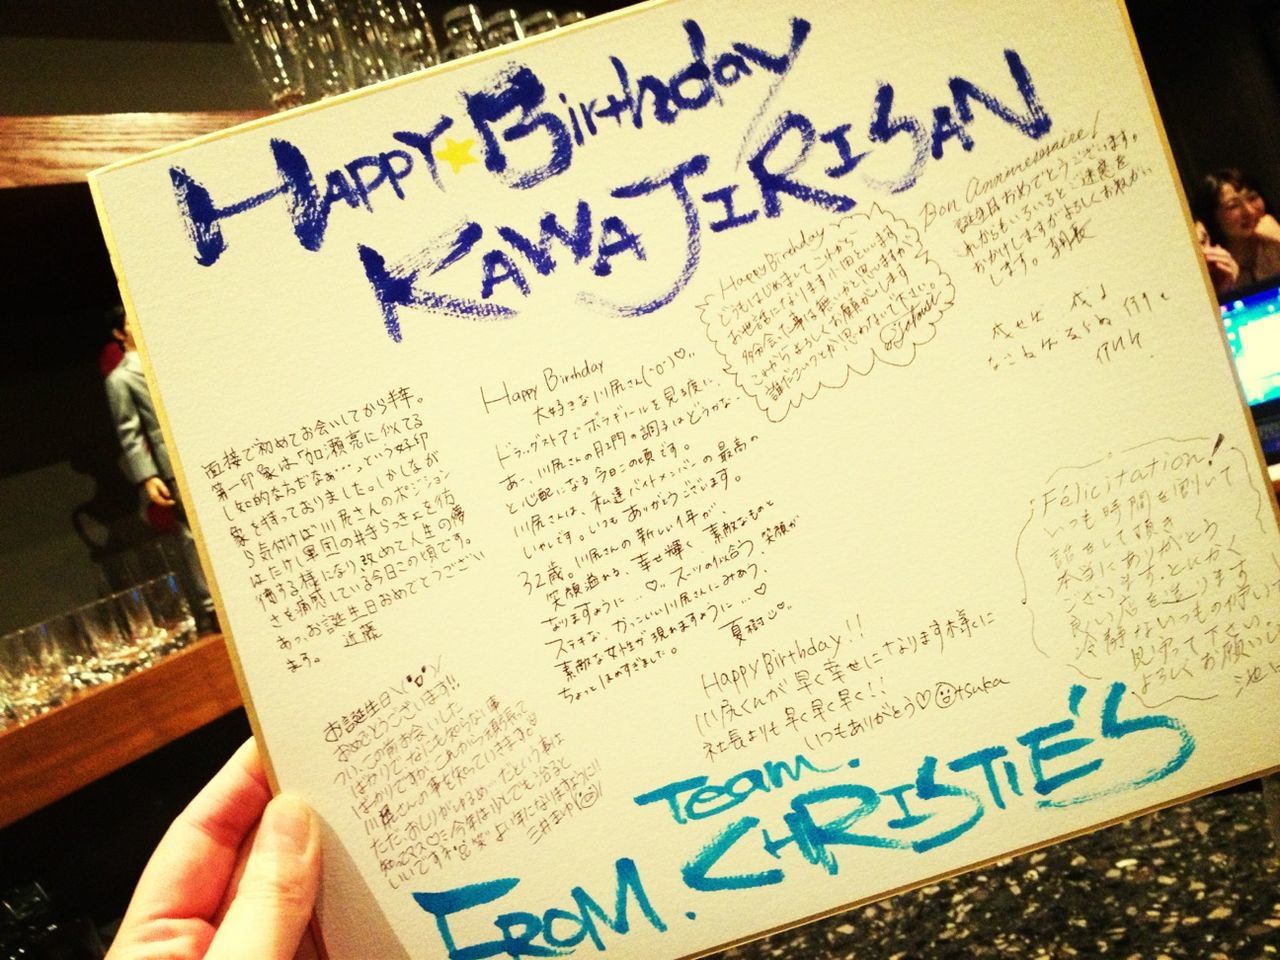 HAPPY Birthday
KAWAJIRISAN
Bon Anniversaire!
誕生日おめでとうございます。
これからもいろいろとご迷惑を
おかけしますがよろしくお願い
します。
Happy Birthday
どうもはじめましてこれから
お世話になります小田といいます
多分会って事は無いかと思いますが
これからよろしくお願いします
誰だこいつとか思わないで下さい。
Happy Birthday
大好きな川尻さん(^o^)♡"
ドラッグストアでボラギノールを見る度に、
あー、川尻さんの肛門の調子はどうかなー
と心配になる今日この頃です。
川尻さんは、私達バイトメンバーの最高の
いやしです。いつもありがとうございます。
32歳。川尻さんの新しい1年が、
笑顔溢れる、幸せ輝く素敵なものと
なりますように…♡"スーツの似合う、笑顔が
ステキな、かっこいい川尻さんにみあう、
素敵な女性が現れますように…♡
ちょっとほめすぎました。 夏樹
面接で初めてお会いしてから半年。
第一印象は「加瀬亮に似てる
知的な方だなぁ…」という好印
象を持っておりました。しかしなが
ら気付けば川尻さんのポジション
はたけし軍団の井手らっきょを彷
彿する様になり、改めて人生の儚
さを痛感している今日この頃です。
あっ、お誕生日おめでとうござい
ます。 近藤
Félicitation!
いつも時間を割いて
話をして頂き
本当にありがとう
ございます。とにかく
良い店を造ります
冷静ないつもの
見守って下さい。
よろしくお願いし
お誕生日
おめでとうございます!!
つい、この前お会いした
ばかりでなにも知らない事
ばかりですが、これから頑張って
川尻さんの事を知っていきます。
いいですね
三井
Happy Birthday!!
川尻くんが早く幸せになります様に
社長よりも早く早く早く!!
いつもありがとう♡ otsuka
FROM. Team. CHRISTIE'S